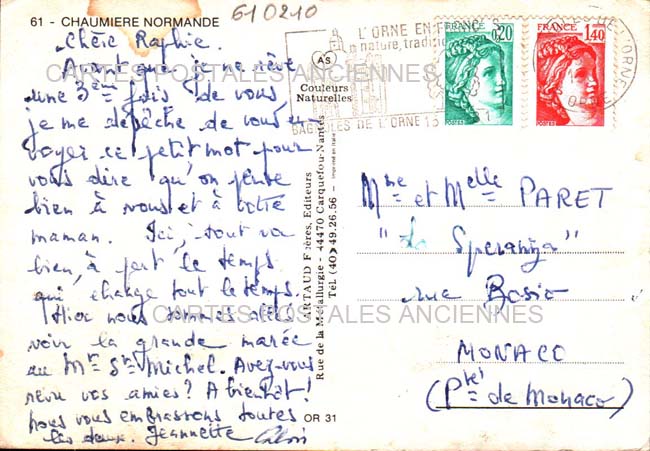 61 - CHAUMIERE NORMANDE
610210
Chère Raphie.
Avant que je ne rêve
une 3ème fois de vous
je me dépêche de vous en-
voyer ce petit mot pour
vous dire qu'on pense
bien à vous et à votre
maman. Ici, tout va
bien, à part le temps
qui change tout le temps.
Hier nous sommes allés
voir la grande marée
au Mt St Michel. Avez-vous
revu vos amies? A bientôt!
Nous vous embrassons toutes
les deux. Jeannette
OR 31
AS
Couleurs
Naturelles
ARTAUD Frères, Editeurs
Rue de la Métallurgie - 44470 Carquefou-Nantes
Tél. (40) 49.26.56 - Imprimé en Italie
L'ORNE EN F
nature, traditi
BAGNOLES DE L'ORNE
0,20
POSTES
FRANCE
1,40
POSTES
L'ORNE
Mme et Melle PARET
"La Speranza"
rue Bosio
MONACO
(Pté de Monaco)
CARTES POSTALES ANCIENNES
CARTES POSTALES ANCIENNES